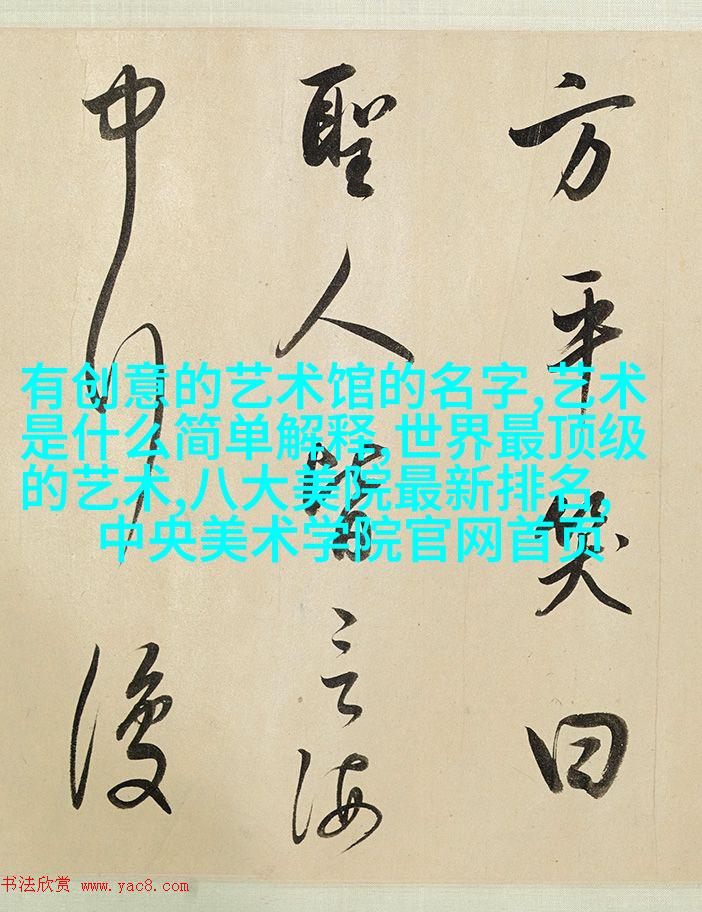 方平笑曰
聖人皆言海
中行復
有创意的艺术馆的名字,艺术
是什么简单解释,世界最顶级
的艺术,八大美院最新排名,
中央美术学院官网首页
书法欣赏 www.yac8.com